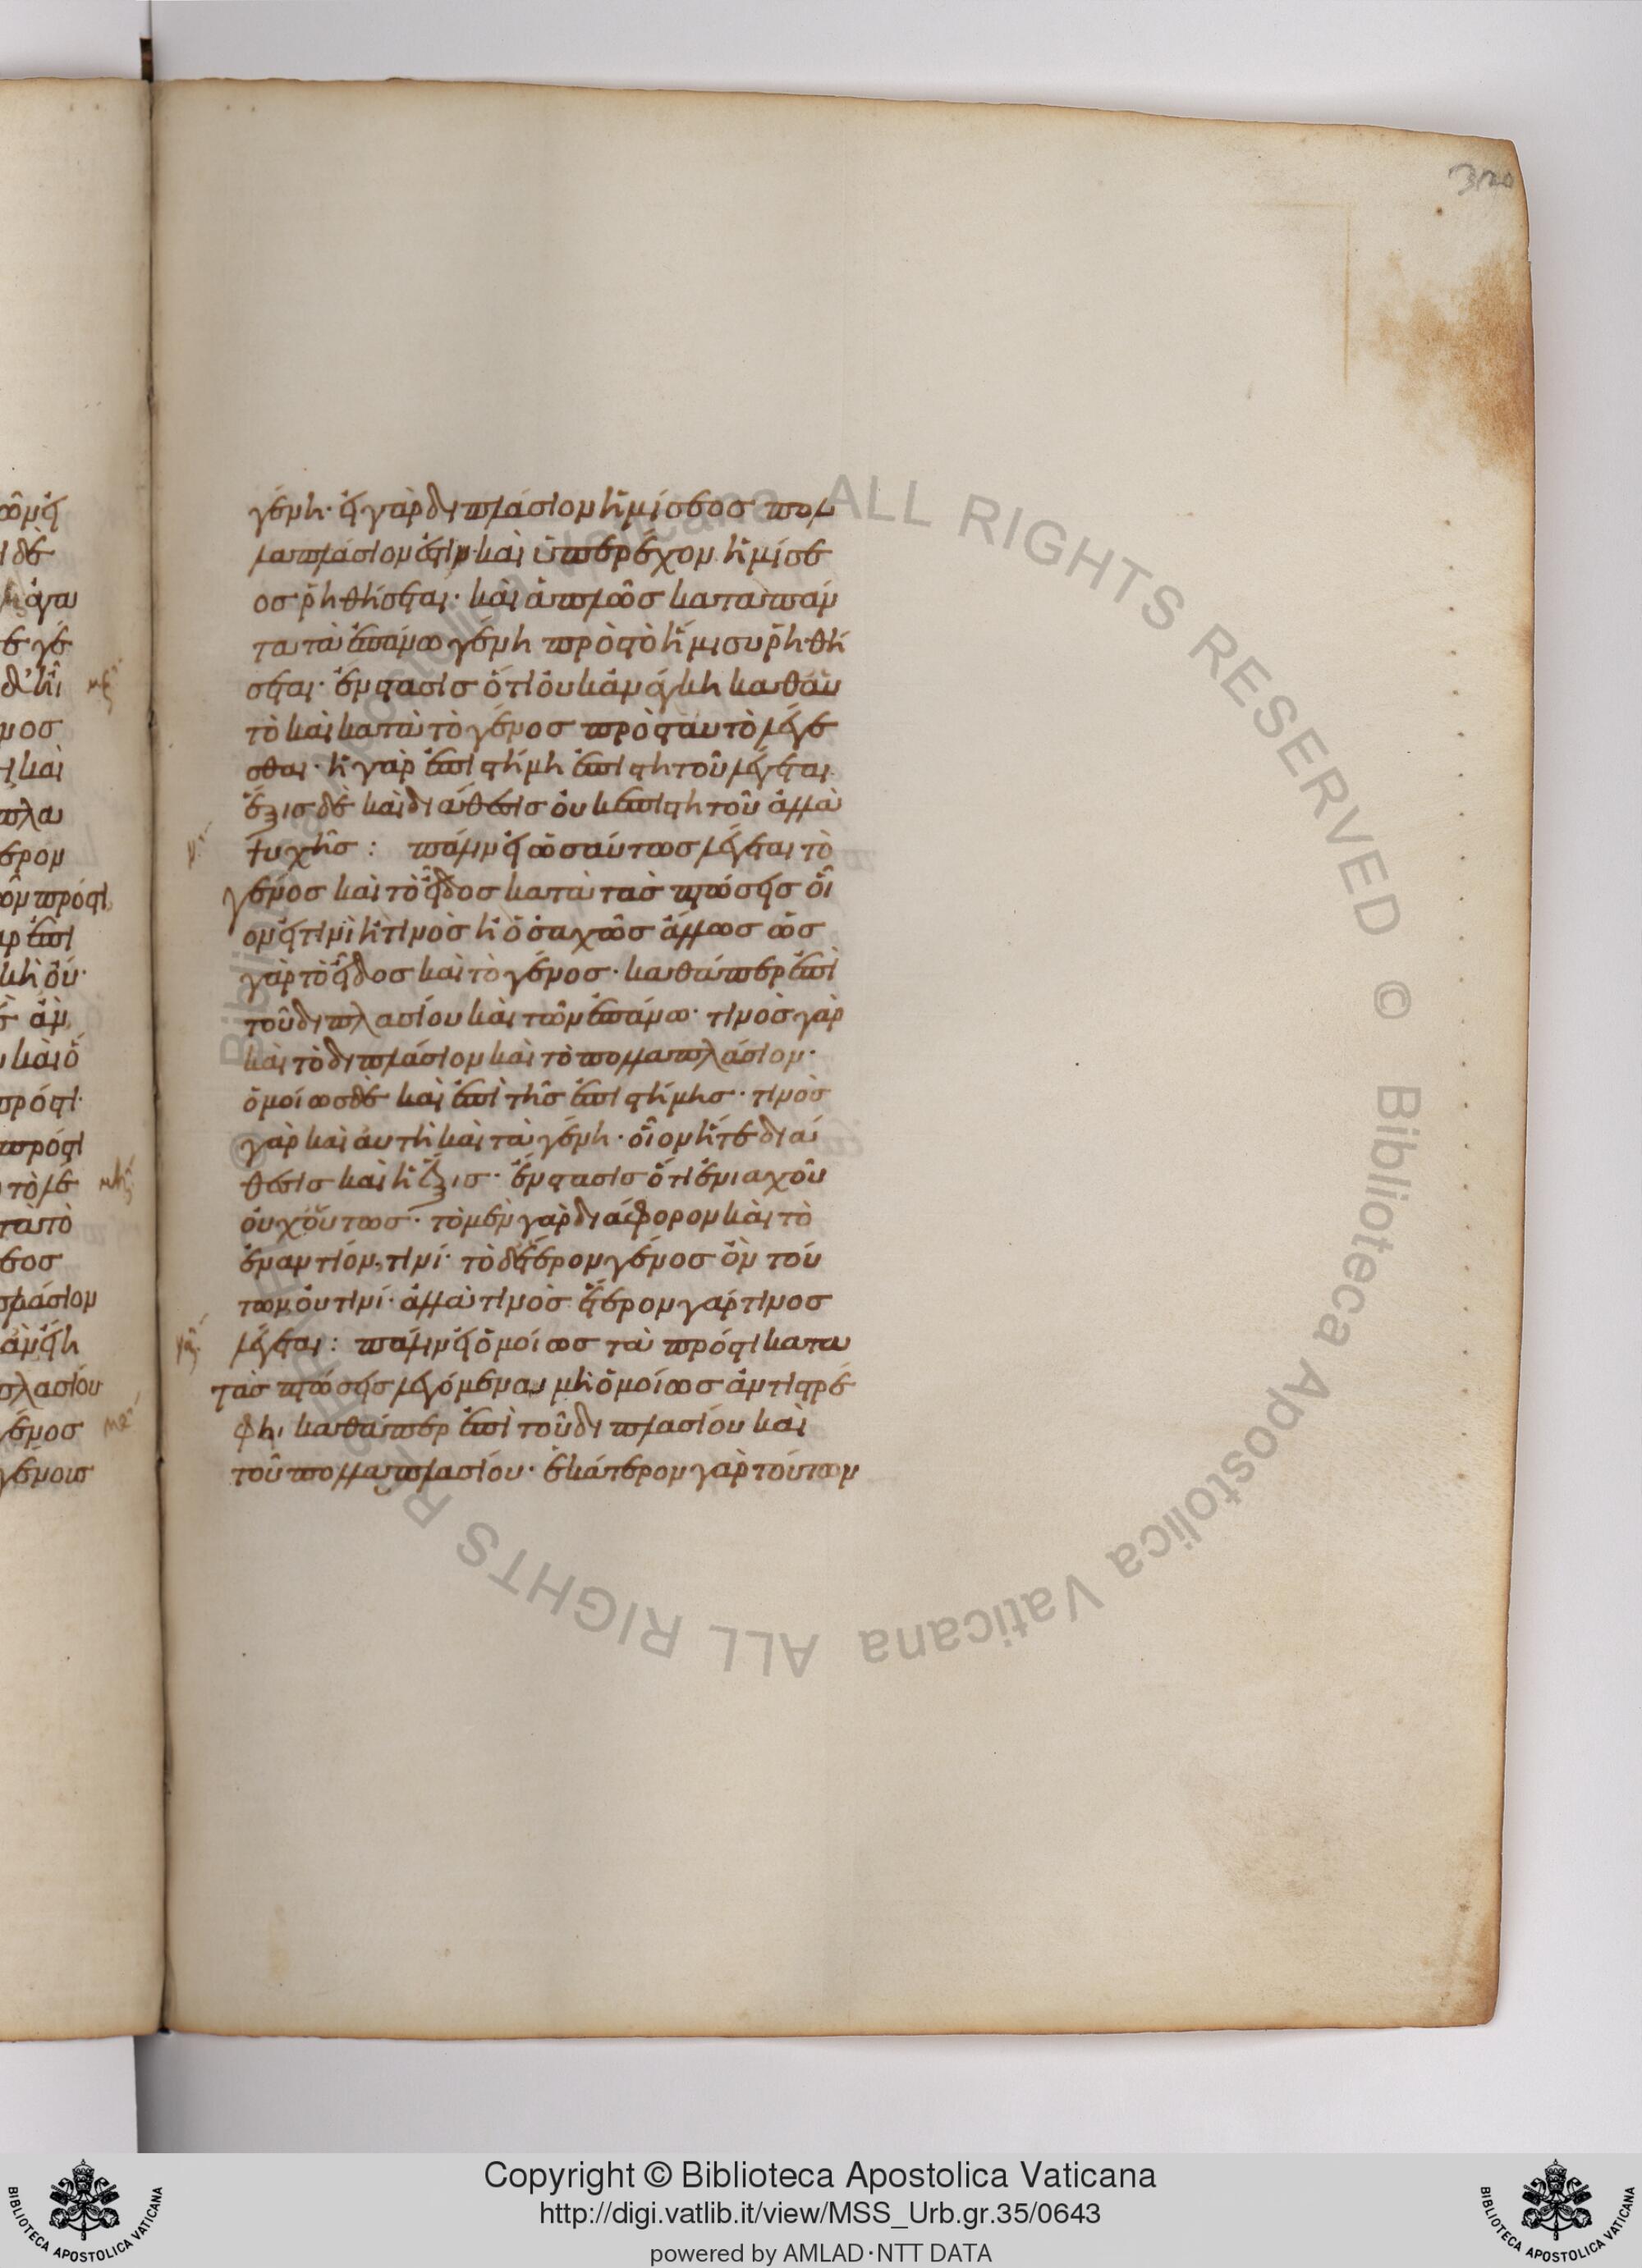 320
γένη· εἰ γὰρ διπλάσιον ἡμίσεος πολ
λαπλάσιον ἐστὶν καὶ ὑπερέχον ἡμίσε
ος ῥηθήσεται· καὶ ἁπλῶς κατὰ πάν
τα τὰ ἐπάνω γένη πρὸς τὸ ἥμισυ ῥηθή
σεται· ἔνστασις ὅτι οὐκ ἀνάγκη καθ' αὑ
τὸ καὶ κατὰ τὸ γένος πρὸς ταυτὸ λέγε
σθαι· ἡ γὰρ ἐπιστήμη ἐπιστητοῦ λέγεται
ἕξις δὲ καὶ διάθεσις οὐκ ἐπιστητοῦ ἀλλὰ
ψυχῆς : πάλιν εἰ ὡσαύτως λέγεται τὸ
γένος καὶ τὸ εἶδος κατὰ τὰς πτώσεις οἷ
ον εἰ τινὶ ἢ τινὸς ἢ ὁσαχῶς ἄλλως ὡς
γὰρ τὸ εἶδος καὶ τὸ γένος· καθάπερ ἐπὶ
τοῦ διπλασίου καὶ τῶν ἐπάνω· τινὸς γὰρ
καὶ τὸ διπλάσιον καὶ τὸ πολλαπλάσιον·
ὁμοίως δὲ καὶ ἐπὶ τῆς ἐπιστήμης· τινὸς
γὰρ καὶ αυτὴ καὶ τὰ γένη· οἷον ἥτε διά
θεσις καὶ ἡ ἕξις· ἔνστασις ὅτι ἐνιαχοῦ
οὐχ οὕτως· τὸ μὲν γὰρ διάφορον καὶ τὸ
ἐναντίον, τινί· τὸ δ' ἕτερον γένος ὂν τού
των, οὐ τινί· ἀλλὰ τινὸς ἕτερον γάρ τινος
λέγεται : πάλιν εἰ ὁμοίως τὰ πρός τι κατα
τὰς πτώσεις λεγόμενα μὴ ὁμοίως ἀντιστρέ
φηι καθάπερ ἐπὶ τοῦ διπλασίου καὶ
τοῦ πολλαπλασίου· ἑκάτερον γὰρ τούτων
Copyright © Biblioteca Apostolica Vaticana
http://digi.vatlib.it/view/MSS_Urb.gr.35/0643
powered by AMLAD·NTT DATA
BIBLIOTECA APOSTOLICA VATICANA
BIBLIOTECA APOSTOLICA VATICANA
© Biblioteca Apostolica Vaticana ALL RIGHTS RESERVED © Biblioteca Apostolica Vaticana ALL RIGHTS R